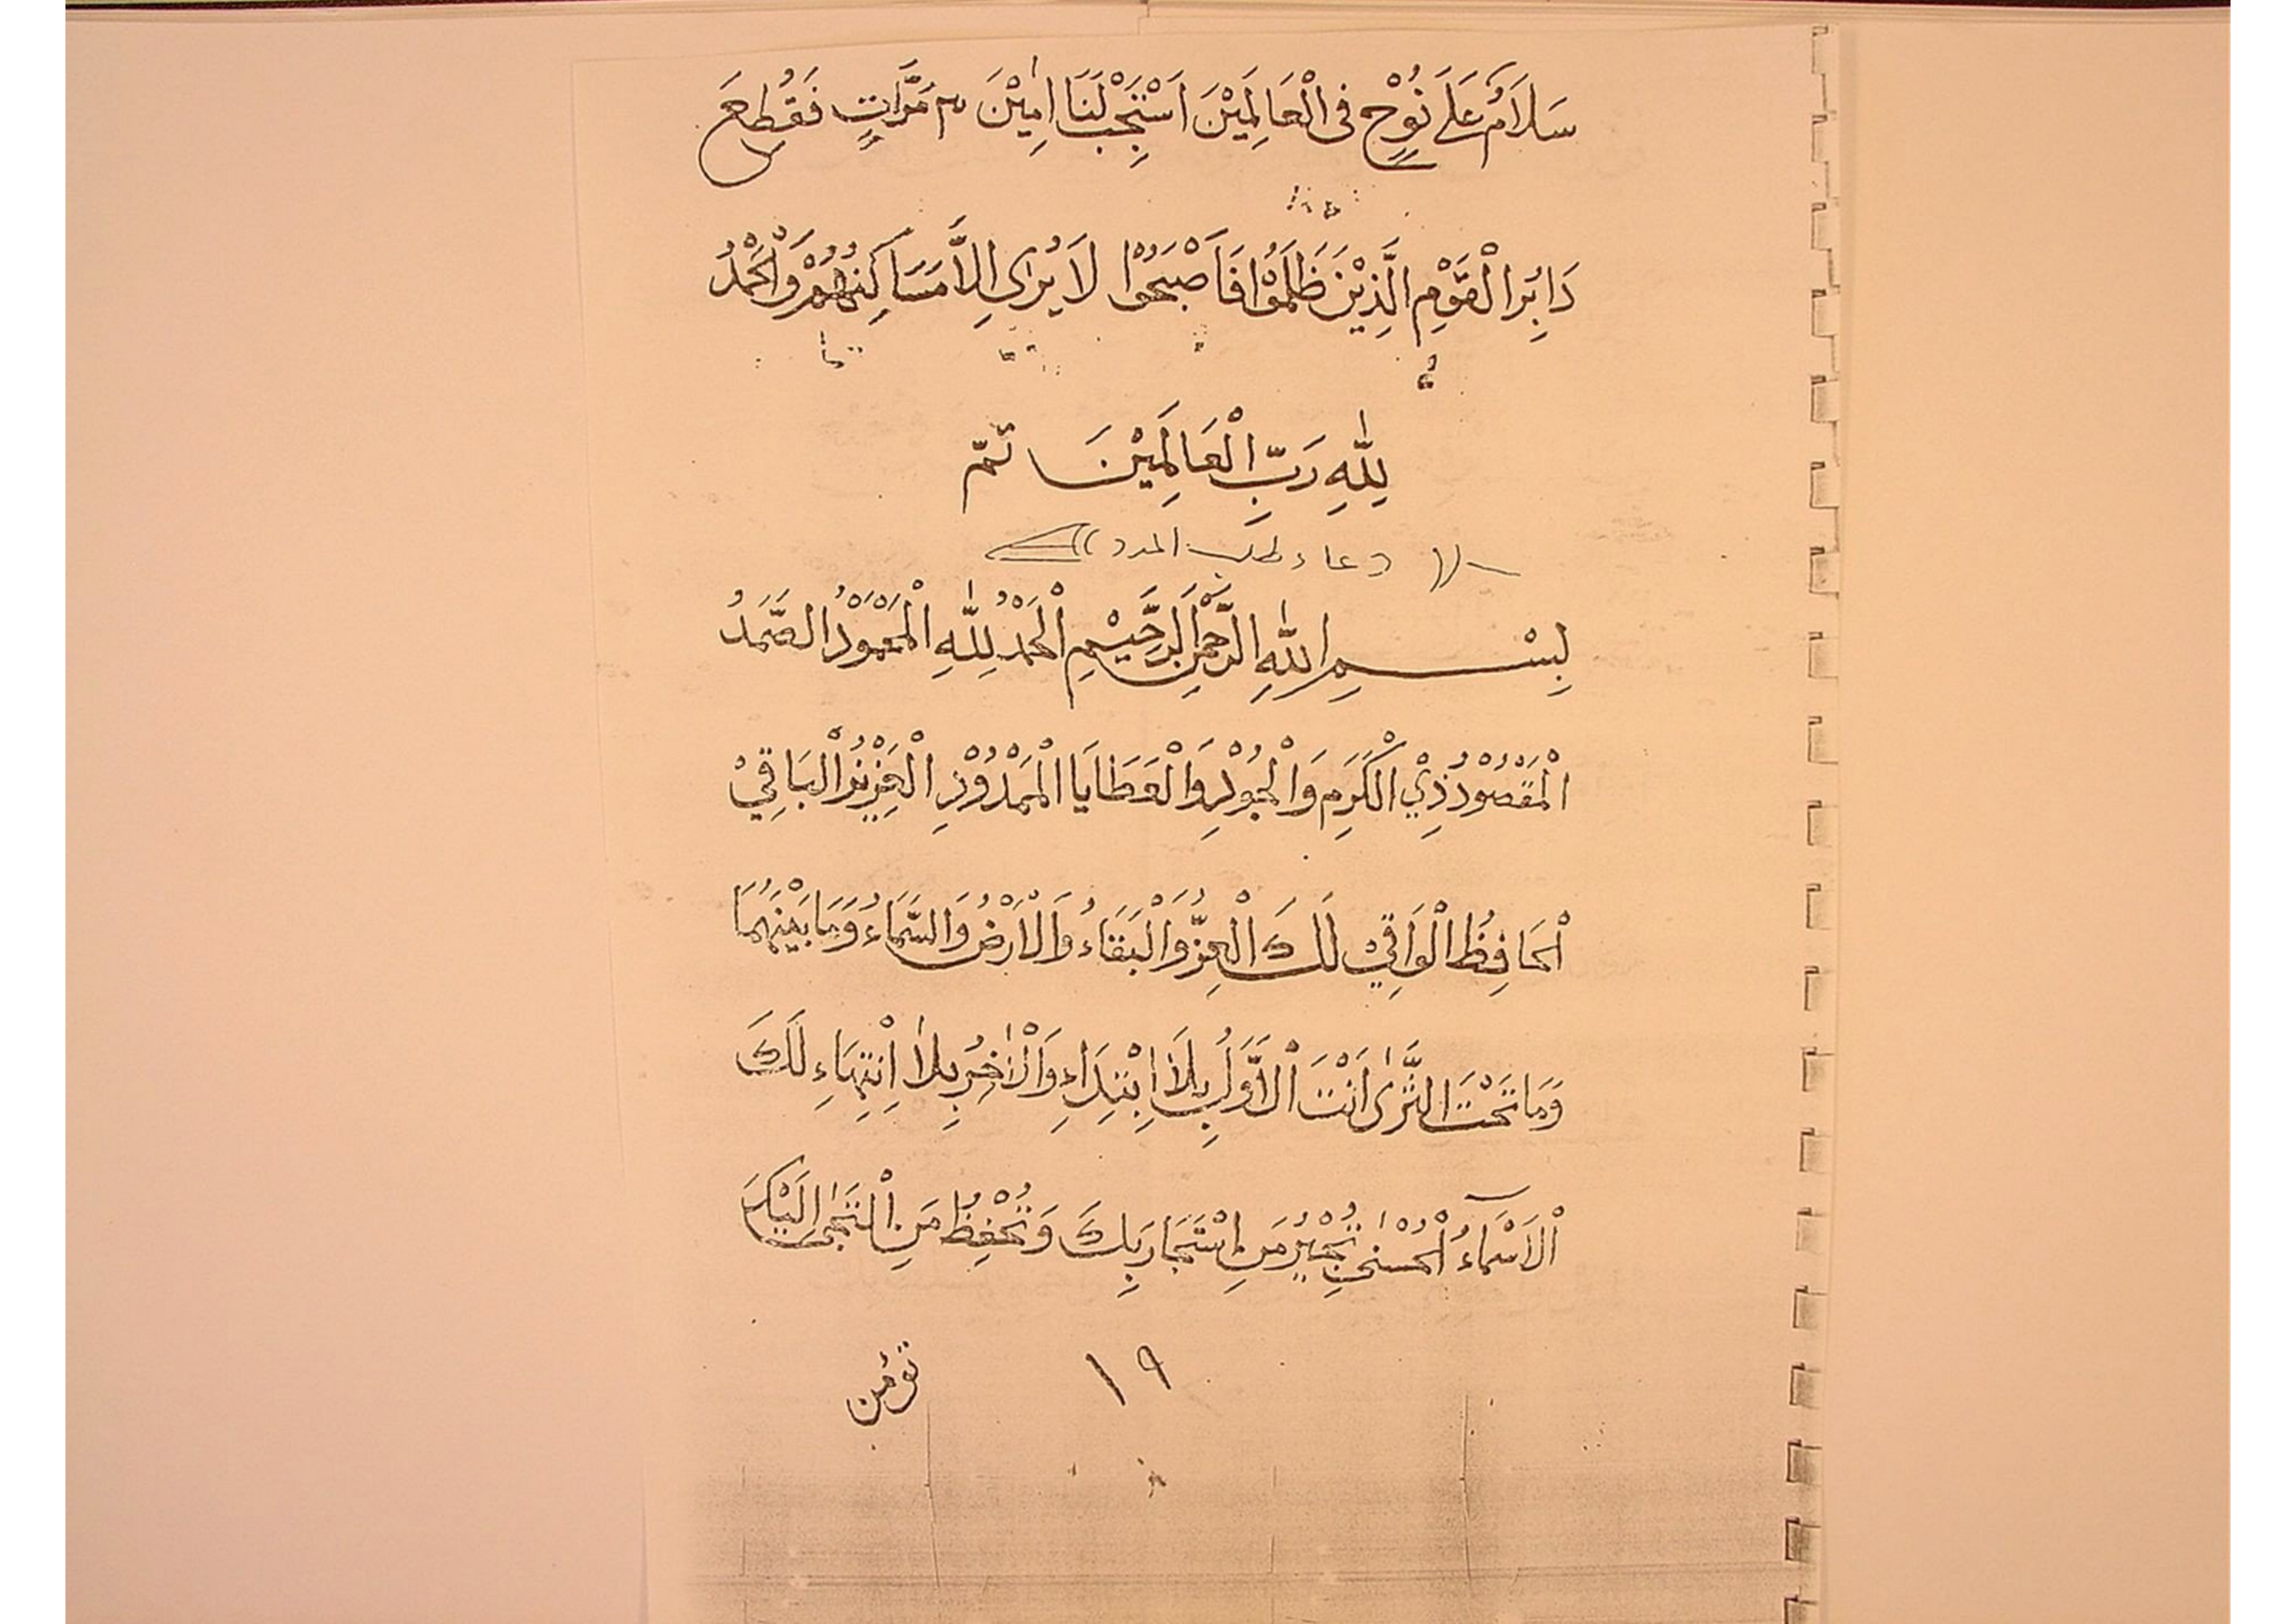 سَلَامٌ عَلَى نُوْحٍ فِى الْعَالَمِيْنَ اَسْتَجِبْ لَنَا اٰمِيْنَ ٣ مَرَّاتٍ فَقُطِعَ
دَابِرُ الْقَوْمِ الَّذِيْنَ ظَلَمُوْا فَاَصْبَحُوْا لَا يُرٰى اِلَّا مَسَاكِنُهُمْ وَالْحَمْدُ
لِلّٰهِ رَبِّ الْعَالَمِيْنَ تمّ
دعاء طلب المدد
بِسْمِ اللّٰهِ الرَّحْمٰنِ الرَّحِيْمِ اَلْحَمْدُ لِلّٰهِ الْمَحْمُوْدُ الصَّمَدُ
الْمَقْصُوْدُ ذِيْ الْكَرَمِ وَالْجُوْدِ وَالْعَطَايَا الْمَمْدُوْدِ الْعَزِيْزُ الْبَاقِيْ
اَلْحَافِظُ الْوَاقِيْ لَكَ الْعِزُّ وَالْبَقَاءُ وَالْاَرْضُ وَالسَّمَاءُ وَمَا بَيْنَهُمَا
وَمَا تَحْتَ الثَّرٰى اَنْتَ الْاَوَّلُ بِلَا اِبْتِدَاءِ وَالْاٰخِرُ بِلَا اِنْتِهَاءِ لَكَ
اَلْاَسْمَاءُ الْحُسْنٰى تُجِيْرُ مَنِ اسْتَجَارَ بِكَ وَتُحْفِظُ مَنِ الْتَجٰى اِلَيْكَ
١٩
تؤمن